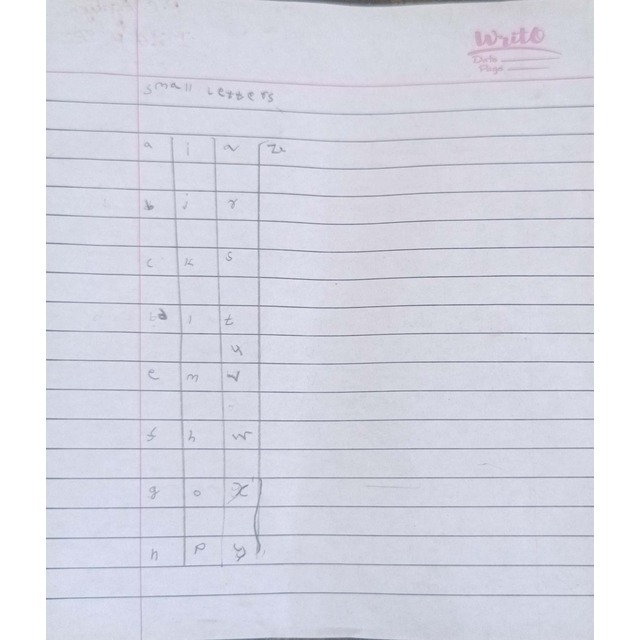 WritO
Date
Page
small Letters
a i q z
b j r
c k s
d l t
u
e m v
f n w
g o x
h p y